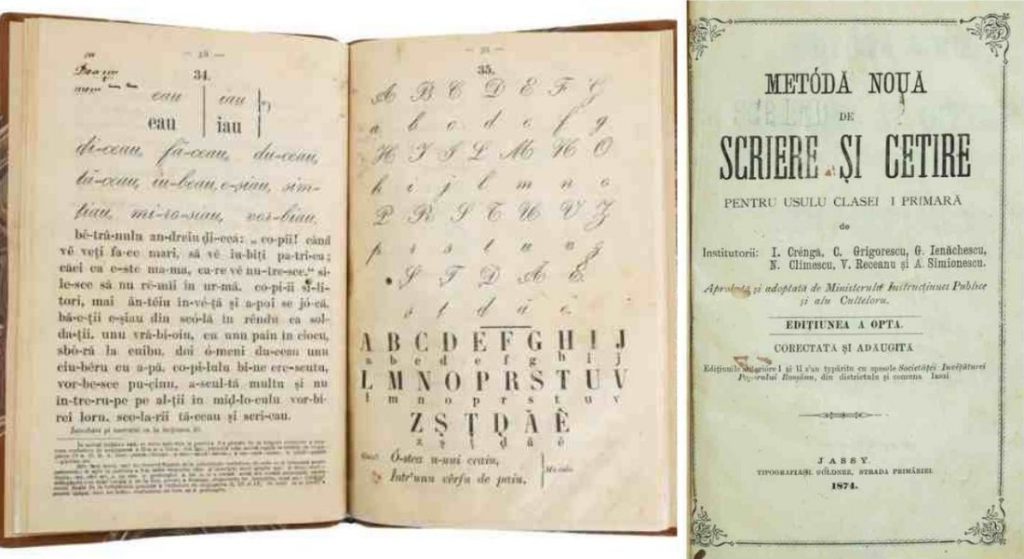 34.
eau | iau
eau | iau
di-ceau, fă-ceau, du-ceau,
tă-ceau, iu-beau, e-șiau, sim-
țiau, mi-ro-siau, vor-biau.
bĕ-trâ-nulu an-dreiu di-cea: „co-pii! când
vĕ veți fa-ce mari, să vĕ iu-biți pa-tri-ea;
căci ea e-ste ma-ma, ca-re vĕ nu-tre-sce." si-
le-sce să nu rĕ-mâi în ur-mă. co-pi-ii si-li-
tori, mai ân-tĕiu în-vé-ță și a-poi se jó-că.
bă-e-ții e-șiau din scó-lă în rêndu ca sol-
da-ții. unu vră-bi-oiu, cu unu pain în ciocu,
sbó-ră la cuibu. doi ó-meni du-ceau unu
ciu-bĕru cu a-pă. co-pi-lulu bi-ne cre-scutu,
vor-be-sce pu-çinu, a-scul-tă multu și nu
in-tre-ru-pe pe al-ții in mid-lo-culu vor-bi-
rei loru. sco-la-rii tă-ceau și scri-eau.
35.
A B C D E F G
a b c d e f g
H I J L M N O
h i j l m n o
P R S T U V Z
p r s t u v z
Ș Ț D Ă Ê
ș ț d ă ê
A B C D E F G H I J
a b c d e f g h i j
L M N O P R S T U V
l m n o p r s t u v
Z Ș Ț D Ă Ê
z ș ț d ă ê
O-stea u-nui craiu,
Intr'unu vêrfu de paiu.
METÓDA NOUA
DE
SCRIERE ȘI CETIRE
PENTRU USULU CLASEI I PRIMARĂ
de
Institutorii: I. Créngă, C. Grigorescu, G. Ienăchescu,
N. Climescu, V. Receanu și A. Simionescu.
Aprobată și adoptată de Ministerulu Instrucțiunei Publice
și alu Culteloru.
EDIȚIUNEA A OPTA.
CORECTATĂ ȘI ADĂUGITĂ
Edițiunile anterióre I și II s'au typăritu cu spesele Societăței Invĕțăturei
Poporului Român, din districtulu și comuna Iassi
JASSY.
TIPOGRAFIA H. GOLDNER, STRADA PRIMĂRIEI
1874.